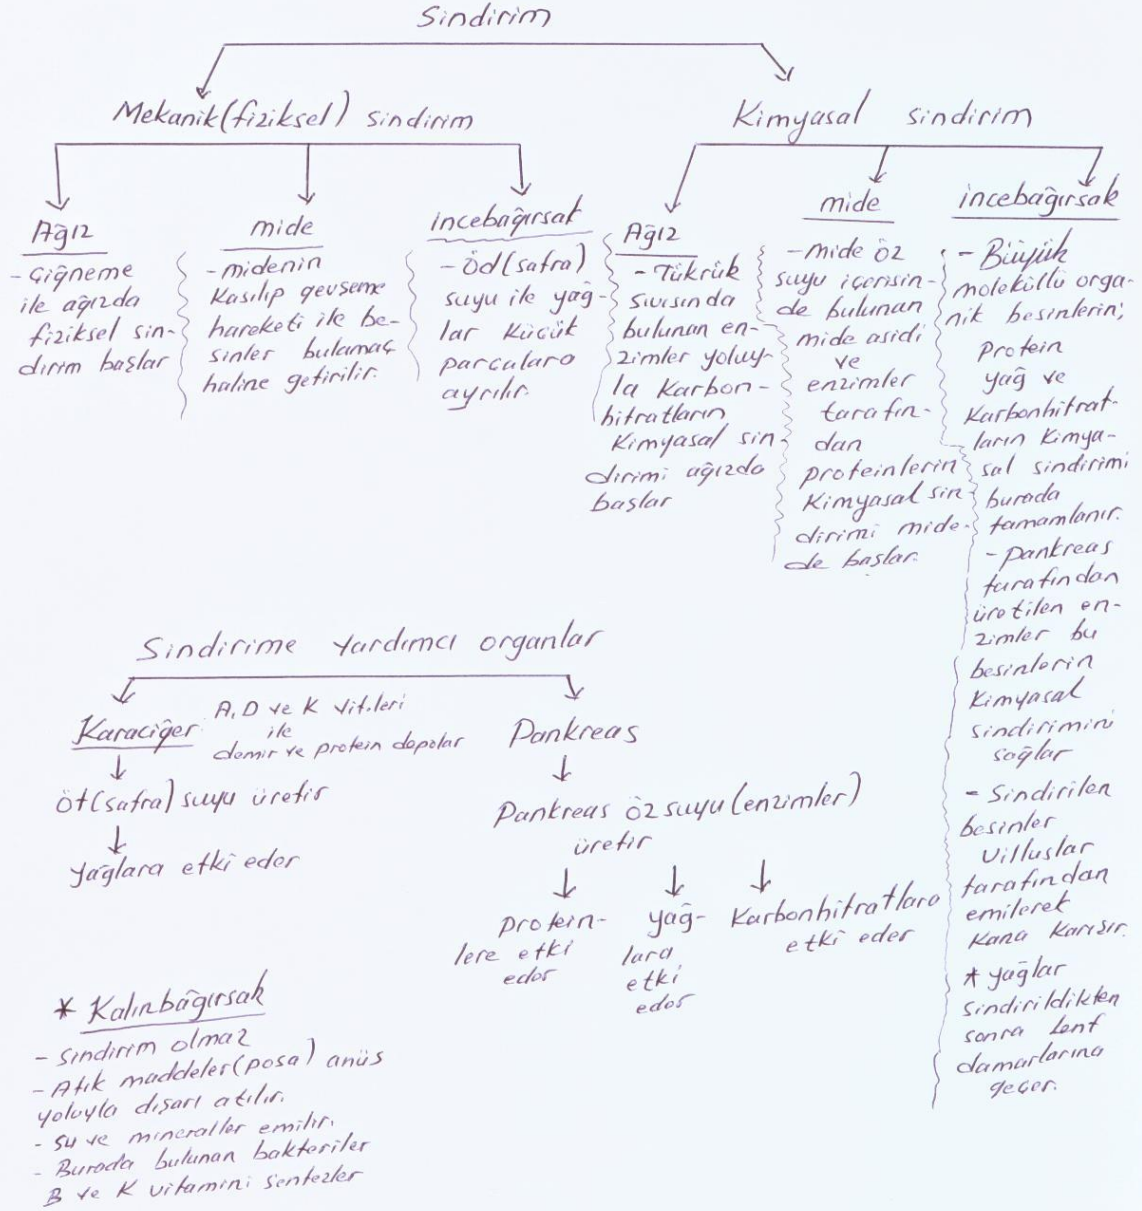 Sindirim
Mekanik(fiziksel) sindirim
Ağız
- Çiğneme
ile ağızda
fiziksel sin-
dirim başlar
mide
- midenin
kasılıp gevşeme
hareketi ile be-
sinler bulamaç
haline getirilir.
incebağırsak
- Öd(safra)
suyu ile yağ-
lar küçük
parçalara
ayrılır.
Kimyasal sindirim
Ağız
- Tükrük
sıvısında
bulunan en-
zimler yoluy-
la karbon-
hitratların
kimyasal sin-
dirimi ağızda
başlar
mide
- mide öz
suyu içerisin-
de bulunan
mide asidi
ve
enzimler
tarafın-
dan
proteinlerin
kimyasal sin-
dirimi mide-
de başlar.
incebağırsak
- Büyük
moleküllü orga-
nik besinlerin;
protein
yağ ve
karbonhitrat-
ların kimya-
sal sindirimi
burada
tamamlanır.
- pankreas
tarafından
üretilen en-
zimler bu
besinlerin
kimyasal
sindirimini
sağlar
- Sindirilen
besinler
villuslar
tarafından
emilerek
kana karışır.
* yağlar
sindirildikten
sonra lenf
damarlarına
geçer.
Sindirime yardımcı organlar
Karaciğer
A, D ve K vit.leri
ile
demir ve protein depolar
öt(safra) suyu üretir
yağlara etki eder
Pankreas
Pankreas öz suyu(enzimler)
üretir
protein-
lere etki
eder
yağ-
lara
etki
eder
Karbonhitratlara
etki eder
* Kalınbağırsak
- Sindirim olmaz
- Atık maddeler(posa) anüs
yoluyla dışarı atılır.
- su ve mineraller emilir.
- Burada bulunan bakteriler
B ve K vitamini sentezler